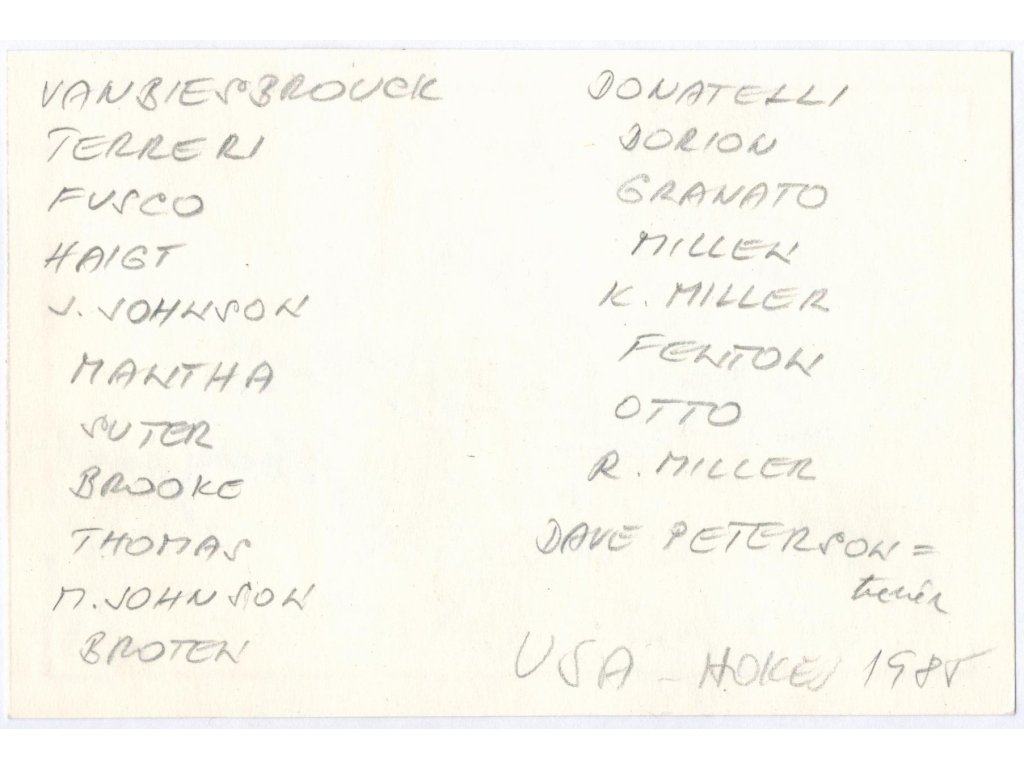 VANBIESBROUCK
TERRERI
FUSCO
HAIGT
J. JOHNSON
MANTHA
SUTER
BROOKE
THOMAS
M. JOHNSON
BROTEN
DONATELLI
DORION
GRANATO
MILLEN
K. MILLER
FENTON
OTTO
R. MILLER
DAVE PETERSON =
trenér
USA - HOKEJ 1985